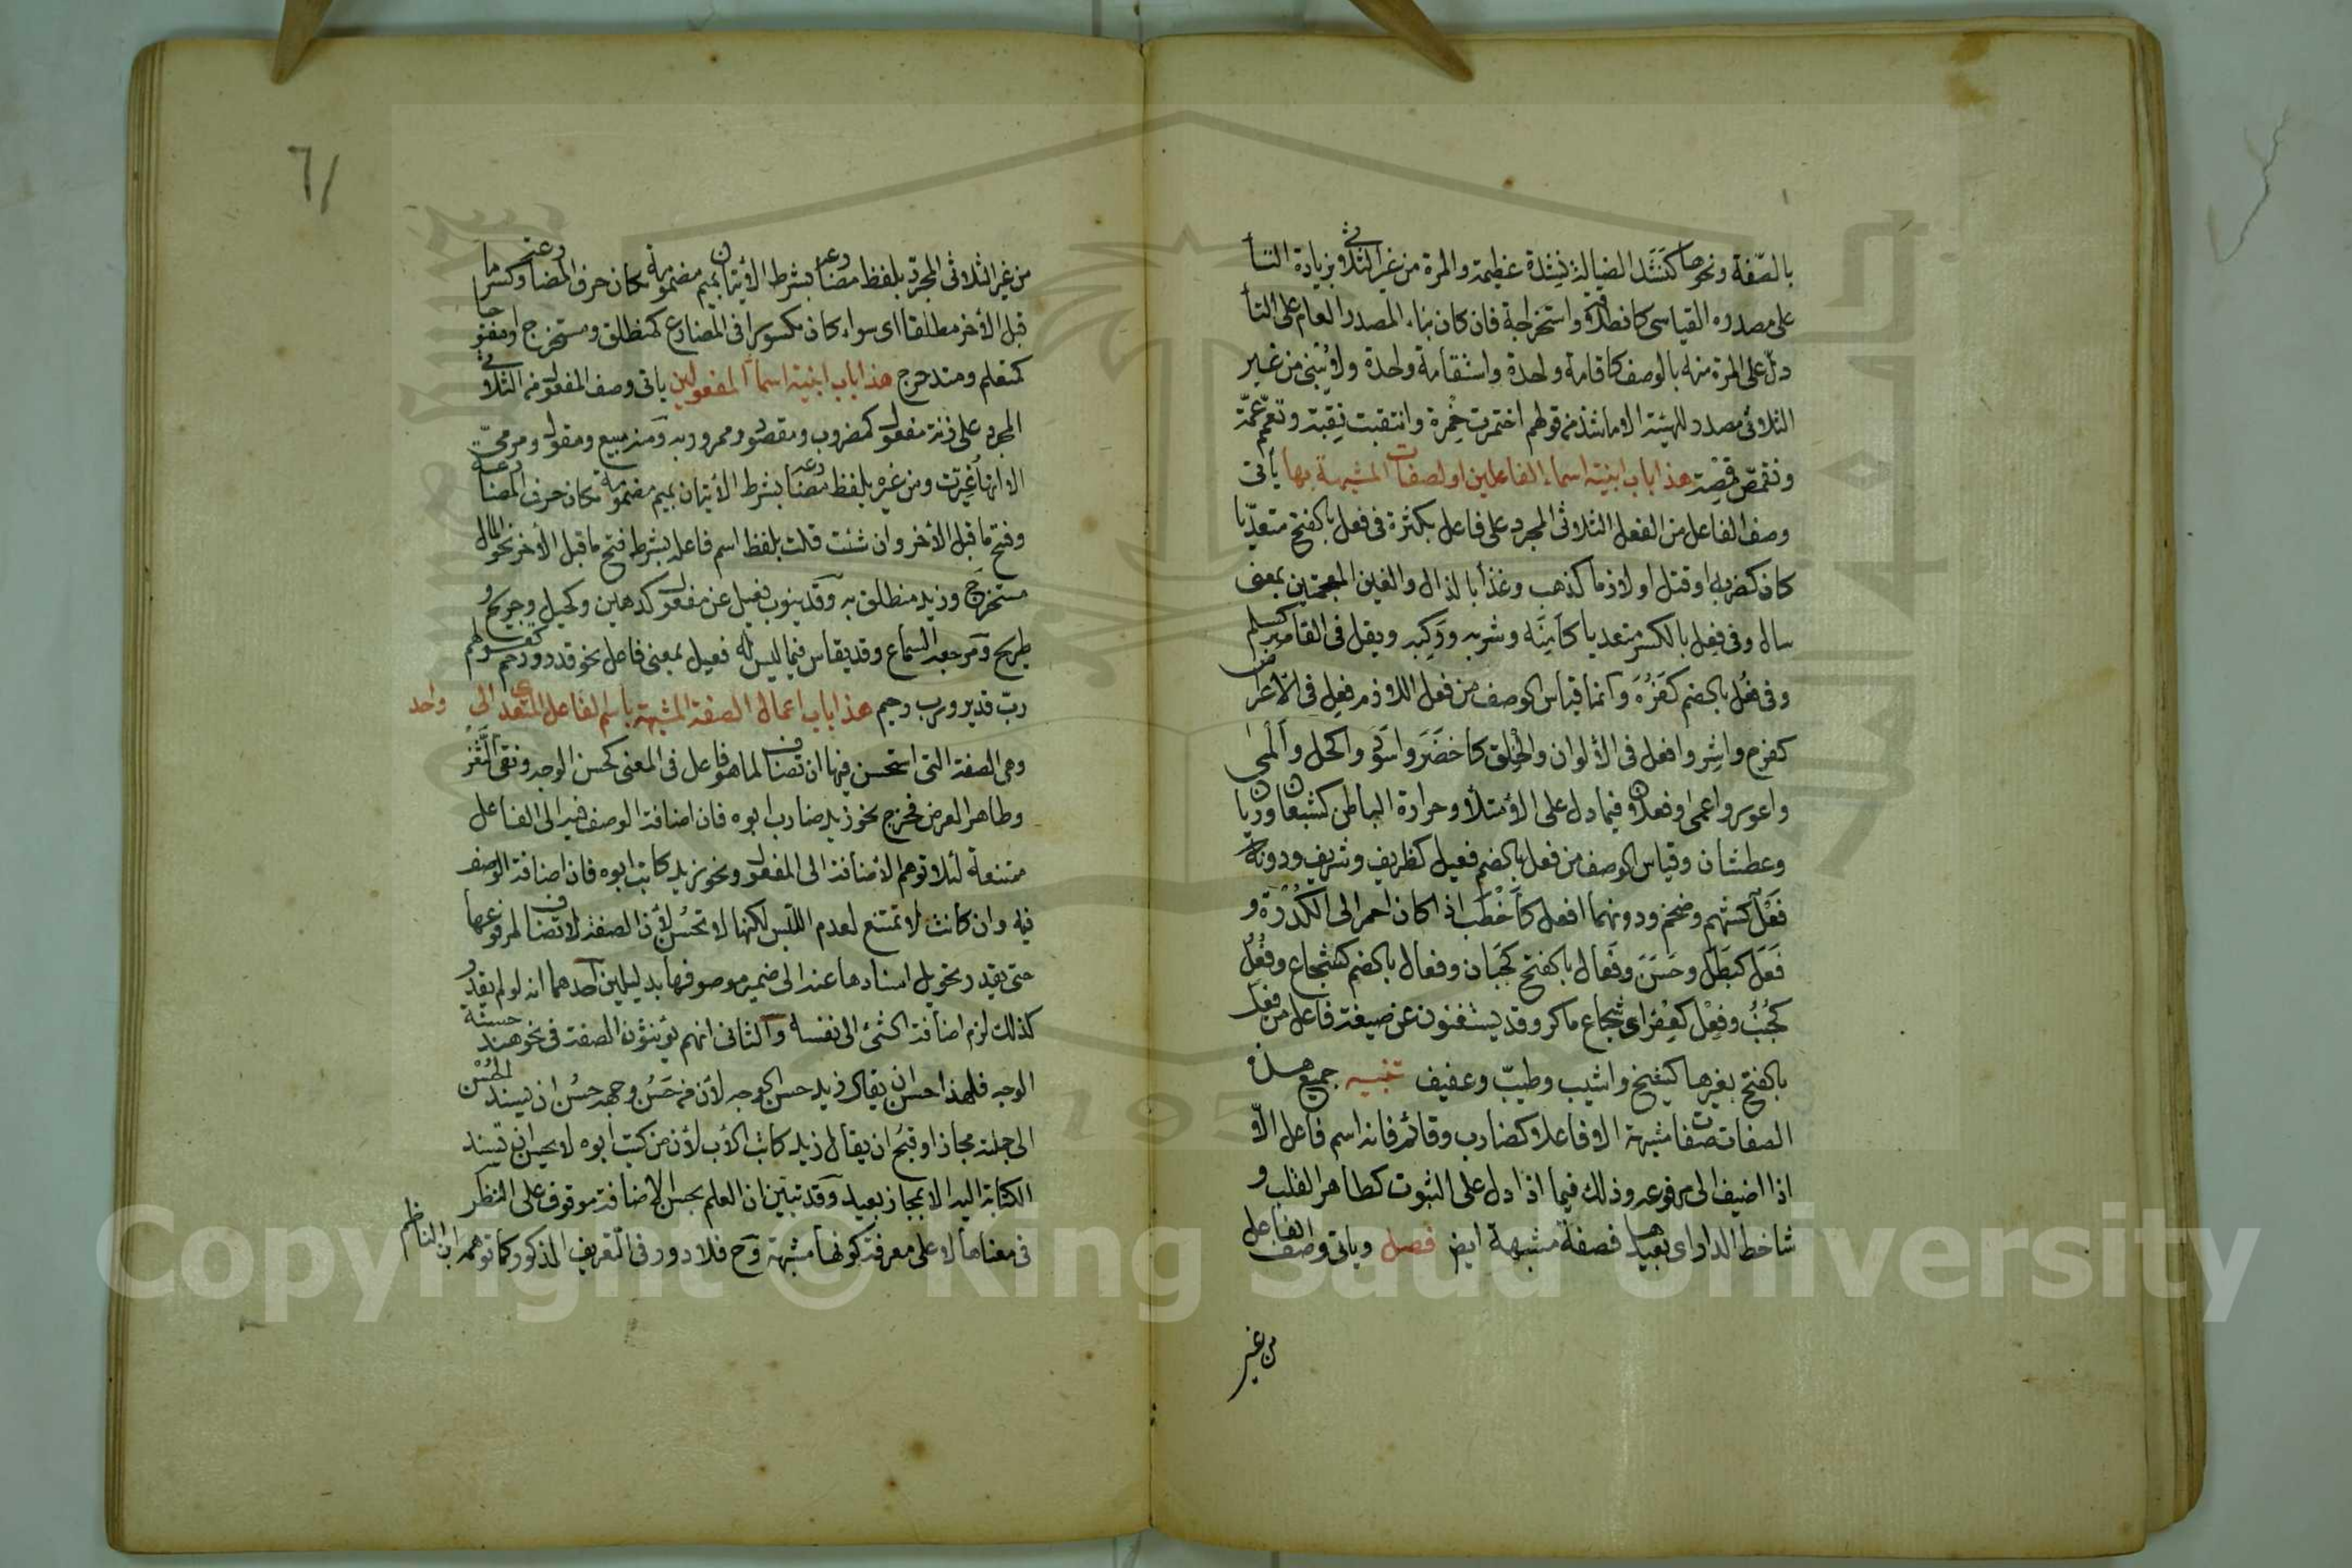 بالصّفة ونحوها كنَشَد الضالة نِشْدة عظيمة والمرة من غير الثلاثي بزيادة التا
على مصدره القياسى كانطلاقة واستخراجة فان كان بناء المصدر العام على التا
دلّ على المرة منه بالوصف كاقامة واحدة واستقامة واحدة ولا يُبنى من غير
الثلاثى مصدر للهيئة الا ما شذ من قولهم اختمرت خِمرة وانتقبت نِقبة وتعمّم عمّة
وتقمّص قمِصة هذا باب ابنية اسماء الفاعلين والصفات المشبهة بها ياتى
وصف الفاعل من الفعل الثلاثى المجرد على فاعل بكثرة فى فعل بالفتح متعدّيا
كان كضربه او قتل او لازما كذهب وغذا بالذال والغين المعجمتين بمعنى
سال وفى فعِل بالكسر متعديا كأمِنَه وشربه وركبه ويقل فى القاصر كسلم
وفى فعُل بالضم كفَرُه وانما قياس الوصف من فعل اللازم فعِل فى الاعراض
كفرح واشر وافعل فى الألوان والخلق كاخضر واسود واكحل وألمى
واعور واعمى وفعلان فيما دل على الامتلا وحرارة الباطن كشبعان وريان
وعطشان وقياس الوصف من فعل بالضم فعيل كظريف وشريف ودونه
فَعْل كشهم وضخم ودونهما افعل كأخْطَب اذا كان احمر الى الكُدْرَة و
فَعَل كبَطَل وحَسَن وفَعال بالفتح كجَبان وفعال بالضم كشجاع وفُعُل
كجُنُب وفِعْل كعِفْر اى شجاع ماكر وقد يستغنون عن صيغة فاعل من فعل
بالفتح بغيرها كشيخ واشيب وطيّب وعفيف تنبيه جميع هذه
الصفات صفات مشبهة الا فاعلا كضارب وقائم فانه اسم فاعل الّا
اذا اضيف الى مرفوعه وذلك فيما اذا دل على الثبوت كطاهر القلب و
شاحط الدار اى بعيدها فصفة مشبهة ايض فصل وياتى وصف الفاعل
من غير
٦١
من غير الثلاثى المجرّد بلفظ مضارعه بشرط الأتيان بميم مضمومة مكان حرف المضارعة وكسر ما
قبل الأخر مطلقا اى سواء كان مكسورا فى المضارع كمنطلق ومستخرج او مفتوحا
كمتعلم ومتدحرج هذا باب ابنية اسماء المفعولين ياتى وصف المفعول من الثلاثى
المجرد على زنة مفعول كمضروب ومقصود وممرور به ومنه مبيع ومقول ومرمىّ
الا انها غُيّرت ومن غيره بلفظ مضارعه بشرط الأتيان بميم مضمومة مكان حرف المضارعة
وفتح ما قبل الأخر وان شئت قلت بلفظ اسم فاعله بشرط فتح ما قبل الأخر نحو المال
مستخرَج وزيد منطلق به وقد ينوب فعيل عن مفعول كدهين وكحيل وجريح و
طريح ومرجعه السماع وقد يقاس فيما ليس له فعيل بمعنى فاعل نحو قدر ورحم كقولهم
ربّ قدير ورب رحيم هذا باب اعمال الصفة المشبهة باسم الفاعل المتعدى الى واحد
وهى الصفة التى استحسن فيها ان تضاف لما هو فاعل فى المعنى كحسن الوجه ونقى الثغر
وطاهر العرض فخرج نحو زيد ضارب ابوه فان اضافة الوصف فيه الى الفاعل
ممتنعة لئلا توهم الاضافة الى المفعول ونحو زيد كاتب ابوه فان اضافة الوصف
فيه وان كانت لا تمتنع لعدم اللبس لكنها لا تحسُن لأن الصفة لا تضاف لمرفوعها
حتى يقدر تحويل اسنادها عنه الى ضمير موصوفها بدليلين احدهما انه لو لم يقدر
كذلك لزم اضافة الشئ الى نفسه والثانى انهم يؤنثون الصفة فى نحو هند حسنة
الوجه فلهذا احسن ان يقال زيد حسن الوجه لأن من حَسُن وجهه حسُن ان يسند الحُسْن
الى جملته مجازا وقبُح ان يقال زيد كاتب الأب لأن من كتب ابوه لا يحسن ان تسند
الكتابة اليه الا بمجاز بعيد وقد تبيّن ان العلم بحسن الاضافة موقوف على النظر
فى معناها لا على معرفة كونها مشبهة وح فلا دور فى التعريف المذكور كما توهمه ابن الناظم
Copyright © King Saud University